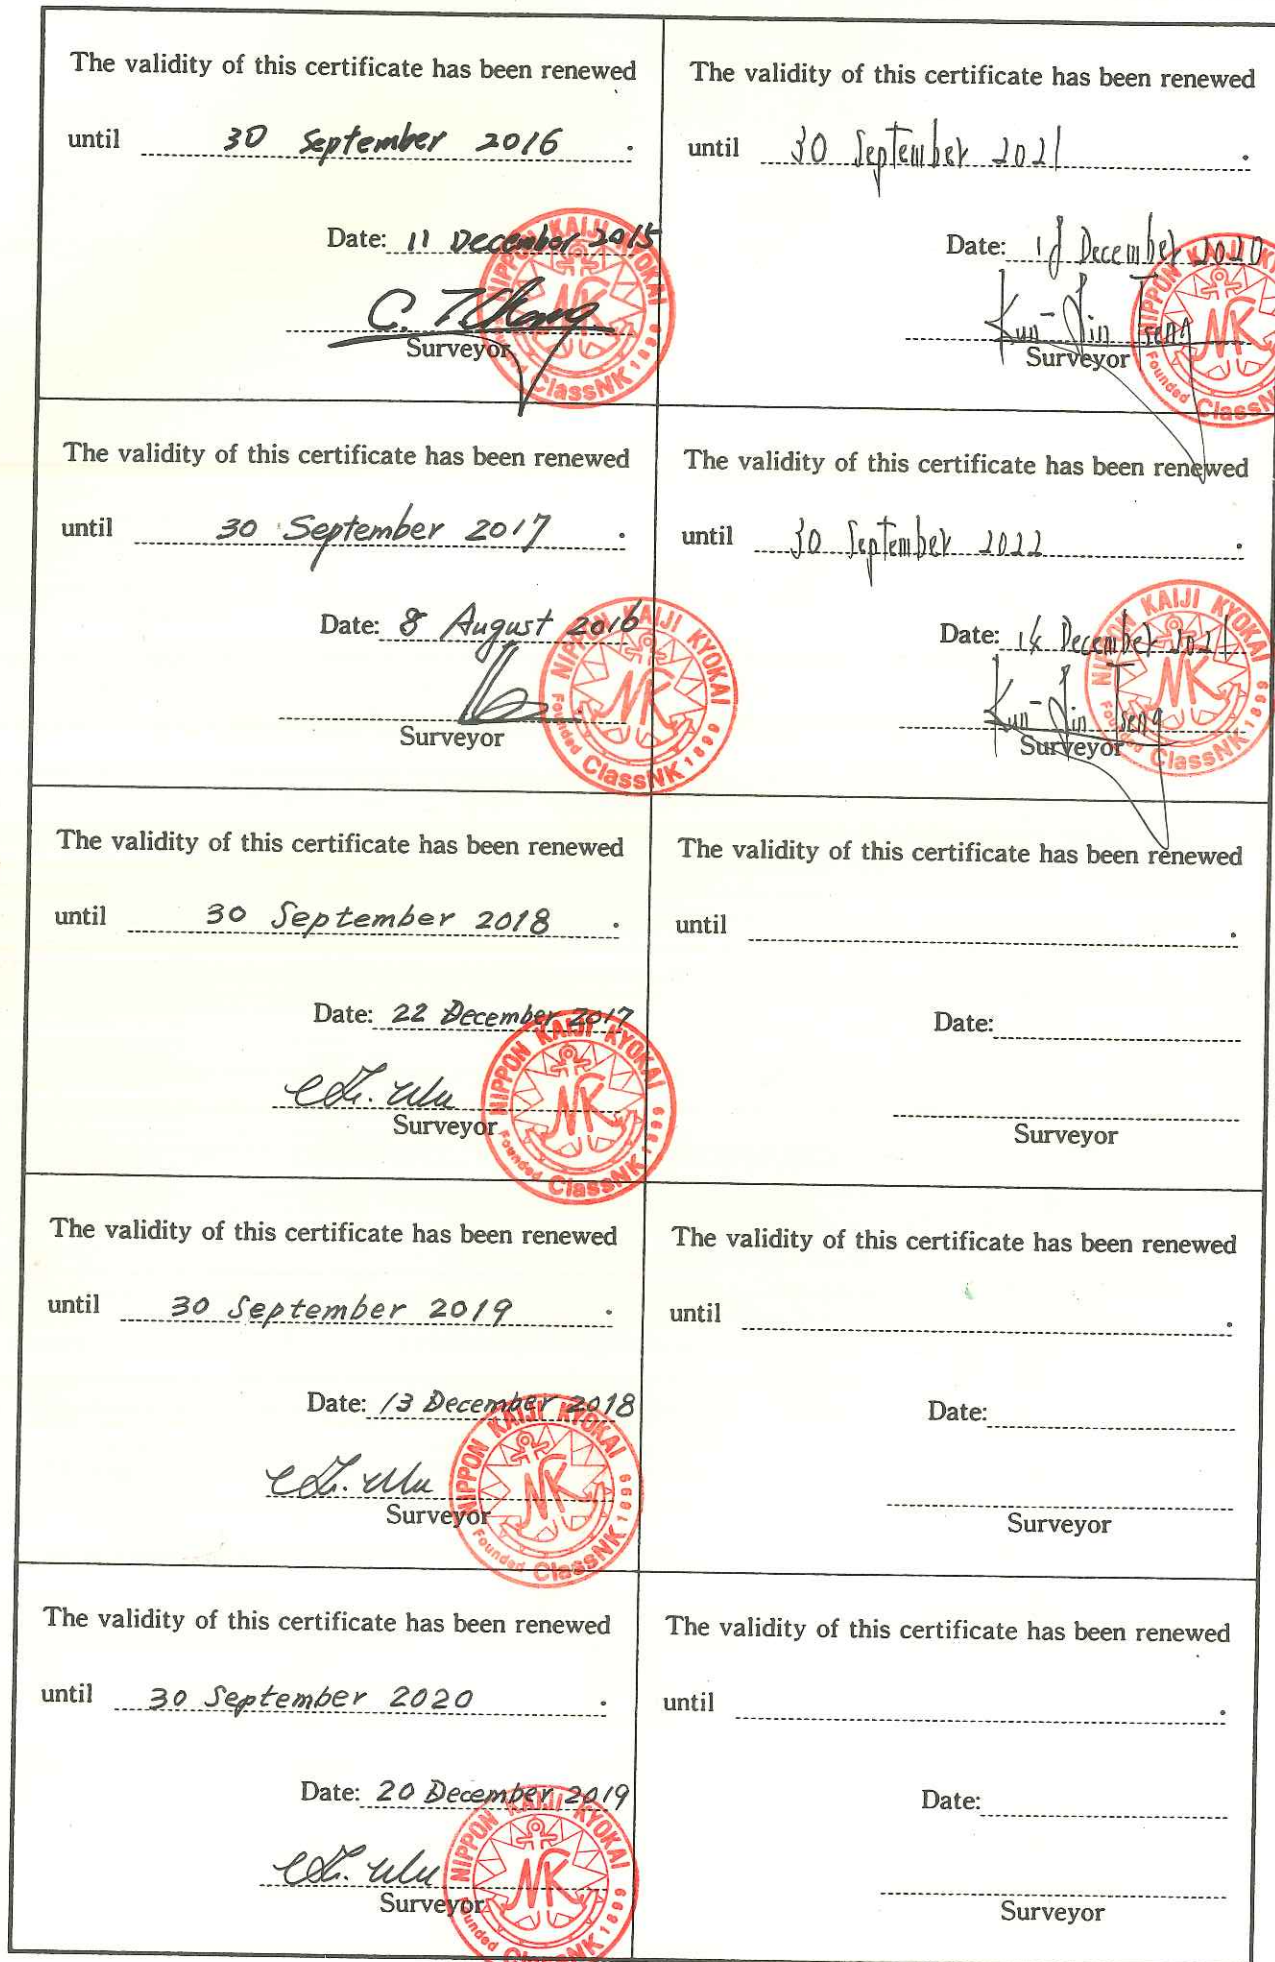 The validity of this certificate has been renewed
until 30 September 2016 .
Date: 11 December 2015
Surveyor
NIPPON KAIJI KYOKAI
ClassNK 1899
The validity of this certificate has been renewed
until 30 September 2017 .
Date: 8 August 2016
Surveyor
NIPPON KAIJI KYOKAI
Founded ClassNK 1899
The validity of this certificate has been renewed
until 30 September 2018 .
Date: 22 December 2017
Surveyor
NIPPON KAIJI KYOKAI
Founded ClassNK 1899
The validity of this certificate has been renewed
until 30 September 2019 .
Date: 13 December 2018
Surveyor
NIPPON KAIJI KYOKAI
Founded ClassNK 1899
The validity of this certificate has been renewed
until 30 September 2020 .
Date: 20 December 2019
Surveyor
NIPPON KAIJI KYOKAI
Founded ClassNK 1899
The validity of this certificate has been renewed
until 30 September 2021 .
Date: December 2020
Kun-Jin Tseng
Surveyor
NIPPON KAIJI
Founded ClassNK
The validity of this certificate has been renewed
until 30 September 2022 .
Date: December 2021
Kun-Jin Tseng
Surveyor
NIPPON KAIJI KYOKAI
Founded ClassNK 1899
The validity of this certificate has been renewed
until .
Date:
Surveyor
The validity of this certificate has been renewed
until .
Date:
Surveyor
The validity of this certificate has been renewed
until .
Date:
Surveyor